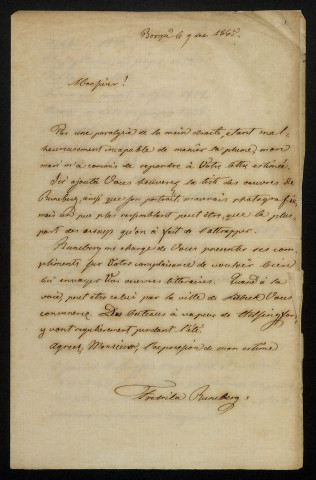 Borgå le 9 me 1867.
Monsieur!
Par une paralysie de la main droite, étant mal-
heureusement incapable de manier la plume, mon
mari m'a commis de repondre à Votre lettre estimée.
Ici ajouté Vous trouverez la liste des oeuvres de
Runeberg, ainsi que son portrait, mauvais photografi,
mais un peu plus ressemblant peut être, que la plus
part des essays qu'on à fait de l'attrapper.
Runeberg me charge de Vous presenter ses com-
pliments pour Votre complaisance de vouloir bien
lui envoyer Vos ouvres litteraires. Quand à la
voie, peut être celui par la ville de Lübeck Vous
conviendra. Des bateaux à vapeur de Helsingfors
y vont regulierement pendant l'été.
Agreez, Monsieur, l'expression de mon estime
Fredrika Runeberg.